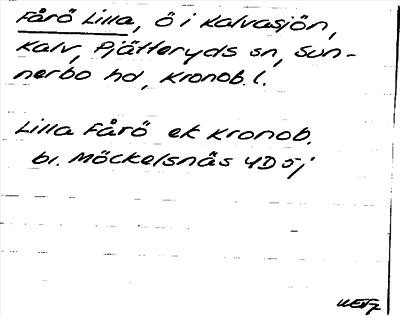 Fårö Lilla, ö i Kalvasjön,
Kalv, Pjätteryds sn, Sun-
nerbo hd, Kronob. l.
Lilla Fårö ek Kronob.
bl. Möckelsnäs 4D 5j